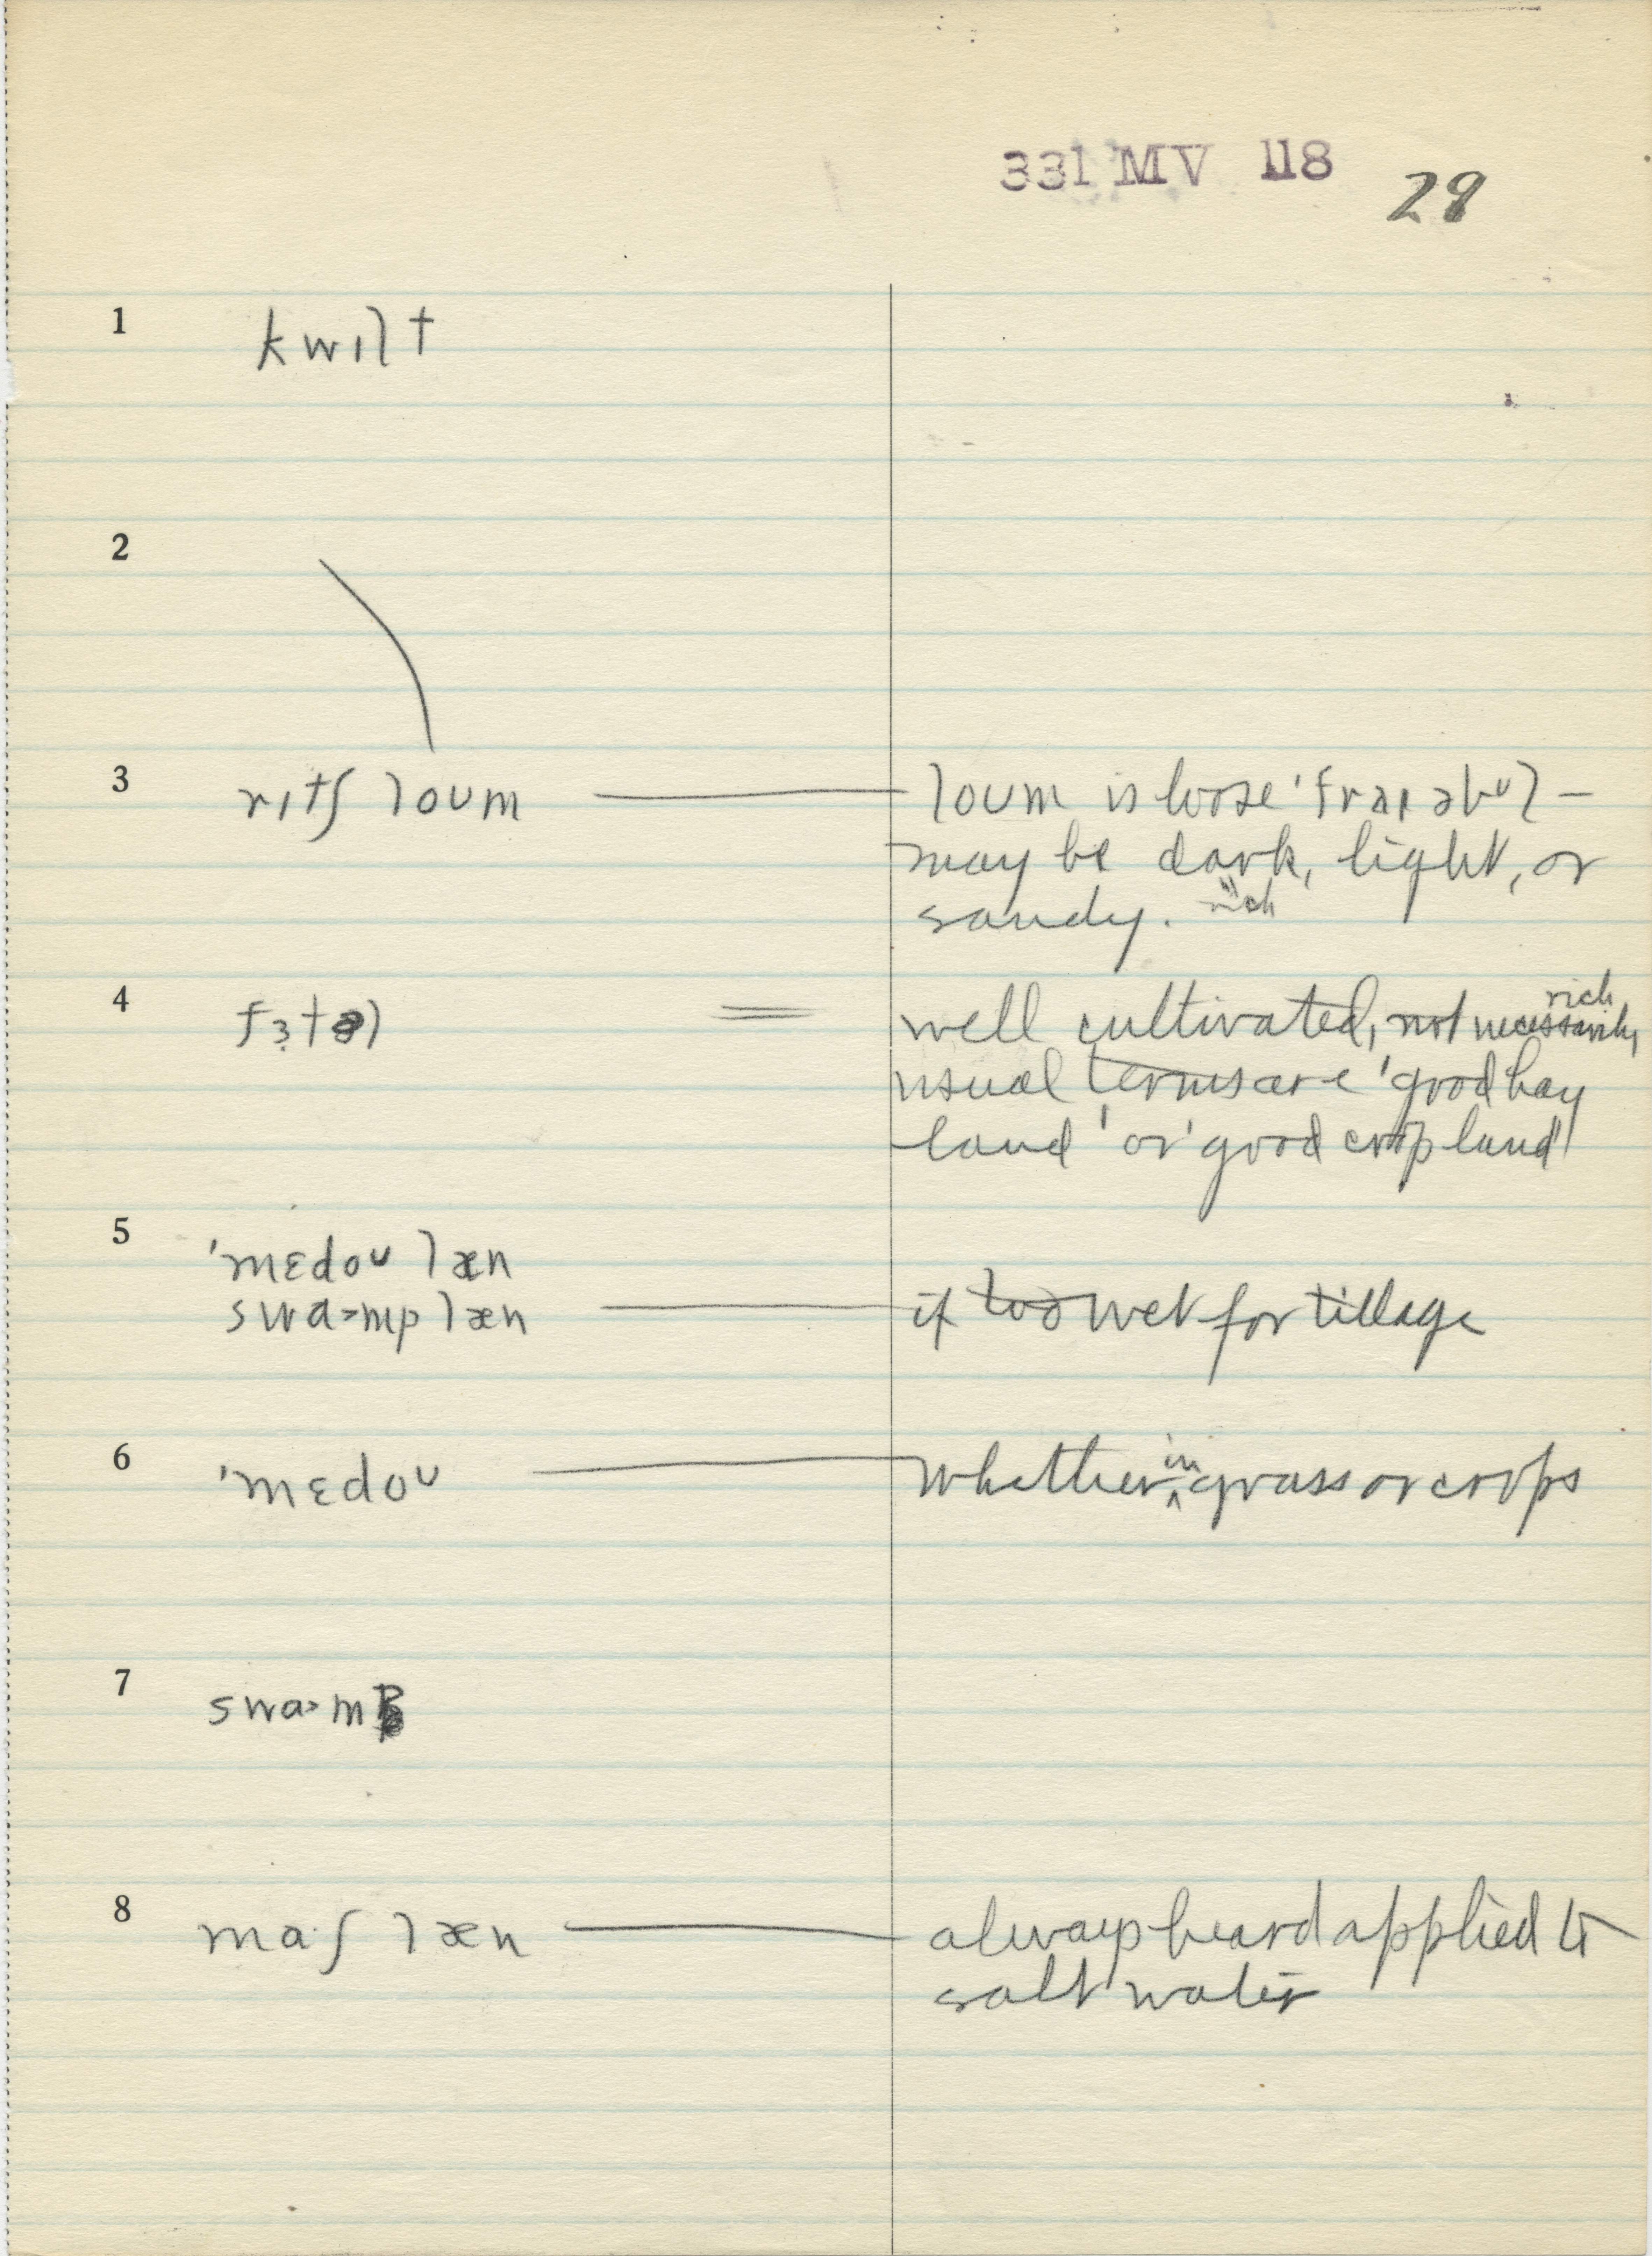 331 MV 118 29
1 kwɪlt
2
3 rɪtʃ loʊm — loʊm is loose 'fraɪəbʊl –
may be dark, light, or
sandy. "rich
4 fɜtəl = well cultivated, not necessarily rich
usual terms are 'good hay
land' or 'good crop land'
5 'mɛdoʊ læn
swa>mp læn — if too wet for tillage
6 'mɛdoʊ — whether in grass or crops
7 swa>m
8 ma·ʃ læn — always heard applied to
salt water